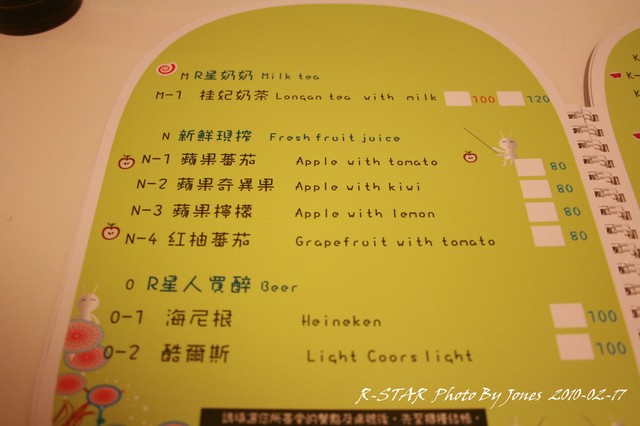 M R星奶奶 Milk tea
M-1 桂妃奶茶 Longan tea with milk 100 120
N 新鮮現搾 Fresh fruit juice
N-1 蘋果蕃茄 Apple with tomato 80
N-2 蘋果奇異果 Apple with kiwi 80
N-3 蘋果檸檬 Apple with lemon 80
N-4 紅柚蕃茄 Grapefruit with tomato 80
O R星人買醉 Beer
O-1 海尼根 Heineken 100
O-2 酷爾斯 Light Coors light 100
請填選您所喜愛的餐點及桌號後，先至櫃檯結帳。
R-STAR Photo By Jones 2010-02-17
K
K-
K